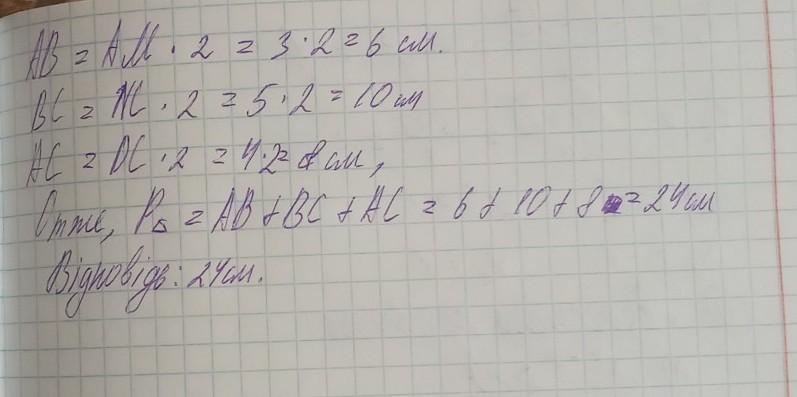 AB = AM · 2 = 3 · 2 = 6 см.
BC = NC · 2 = 5 · 2 = 10 см
AC = DC · 2 = 4 · 2 = 8 см,
Отже, P△ = AB + BC + AC = 6 + 10 + 8 = 24 см
Відповідь: 24 см.